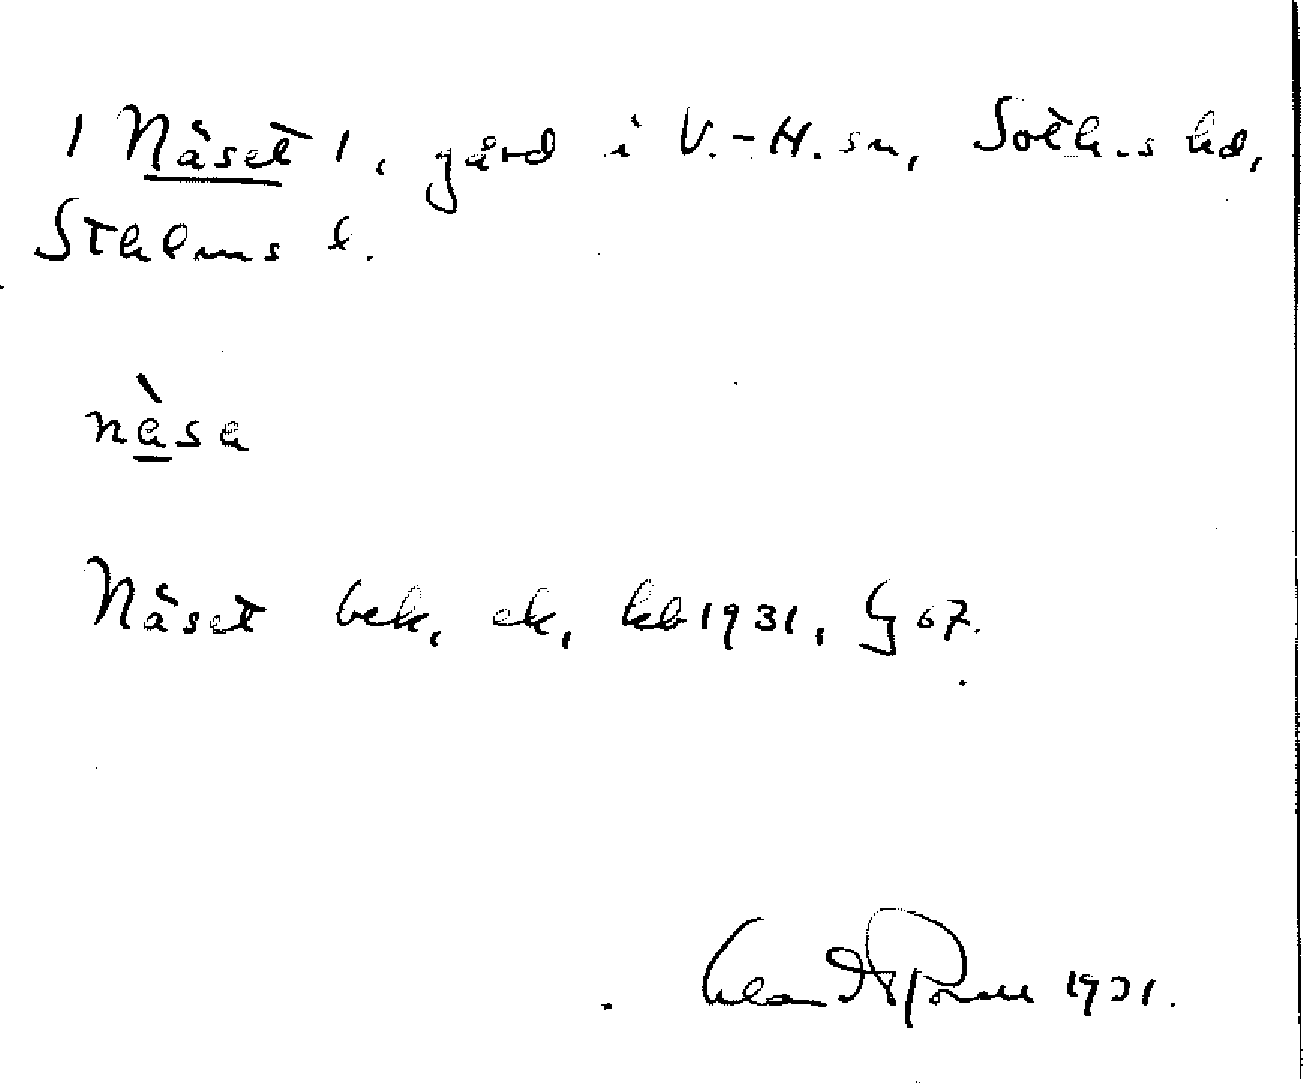 /Näset/, gård i V.-H. sn, Soth.s hd,
Sthlms l.
nàsa
Näset bek, ek, kb 1931, § 67.
1931.